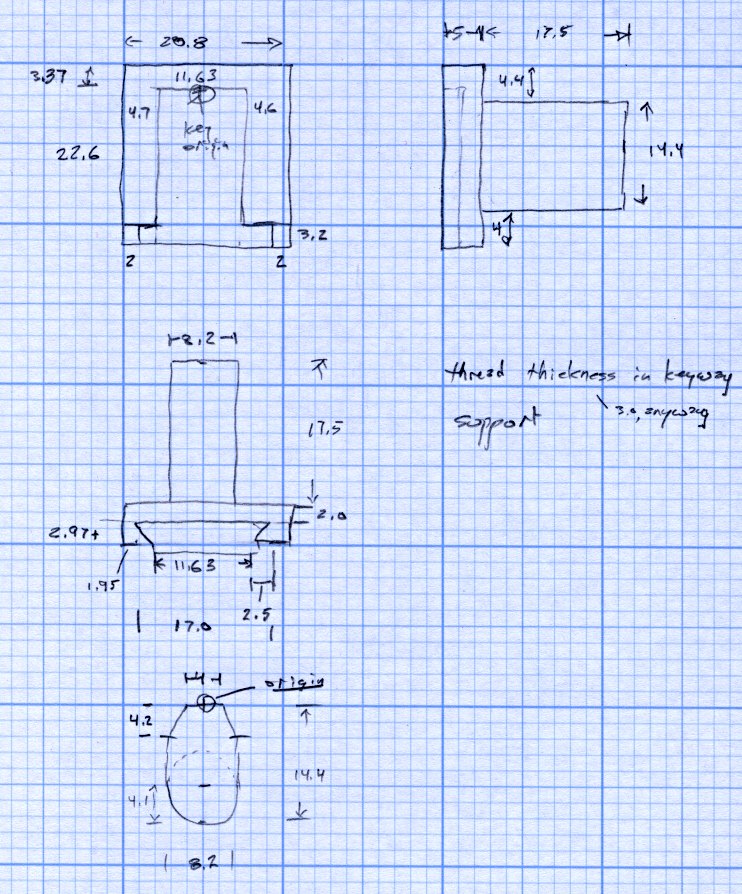 20.8
5 17.5
3.37 11.63
4.4
4.7 4.6
key
origin
22.6 14.4
3.2
4
2 2
8.2
thread thickness in keyway
3.0, anyway
support
17.5
2.0
2.97+
11.63
1.95
2.5
17.0
4 origin
4.2
14.4
4.1
8.2